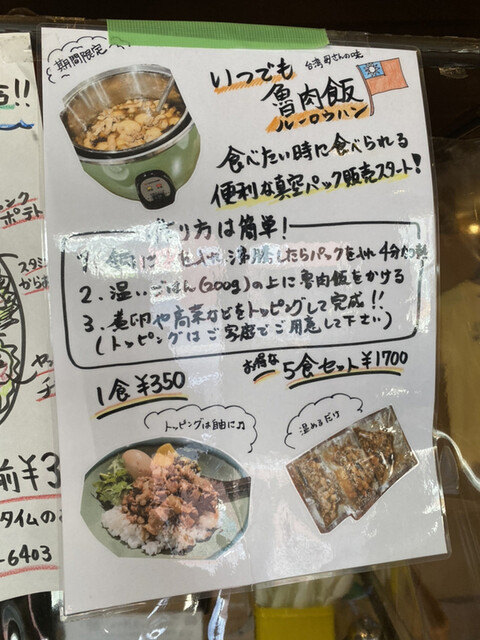 期間限定
台湾母さんの味
いつでも
魯肉飯
ルーロウハン
食べたい時に食べられる
便利な真空パック販売スタート!
作り方は簡単!
1. 鍋に水を入れ沸騰したらパックを入れ4分加熱
2. 温いごはん(200g)の上に魯肉飯をかける
3. 煮卵や高菜などをトッピングして完成!!
(トッピングはご家庭でご用意して下さい)
1食¥350
お得な 5食セット¥1700
トッピングは自由に♫
温めるだけ
!!
ポテト
スタミ
から
前¥3
タイムの
-6403